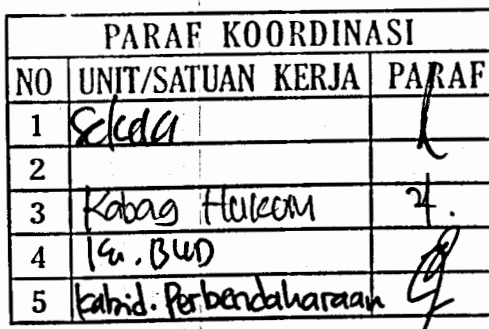 PARAF KOORDINASI
NO UNIT/SATUAN KERJA PARAF
1 Sekda
2
3 Kabag Hukum
4 BUD
5 kabid. Perbendaharaan